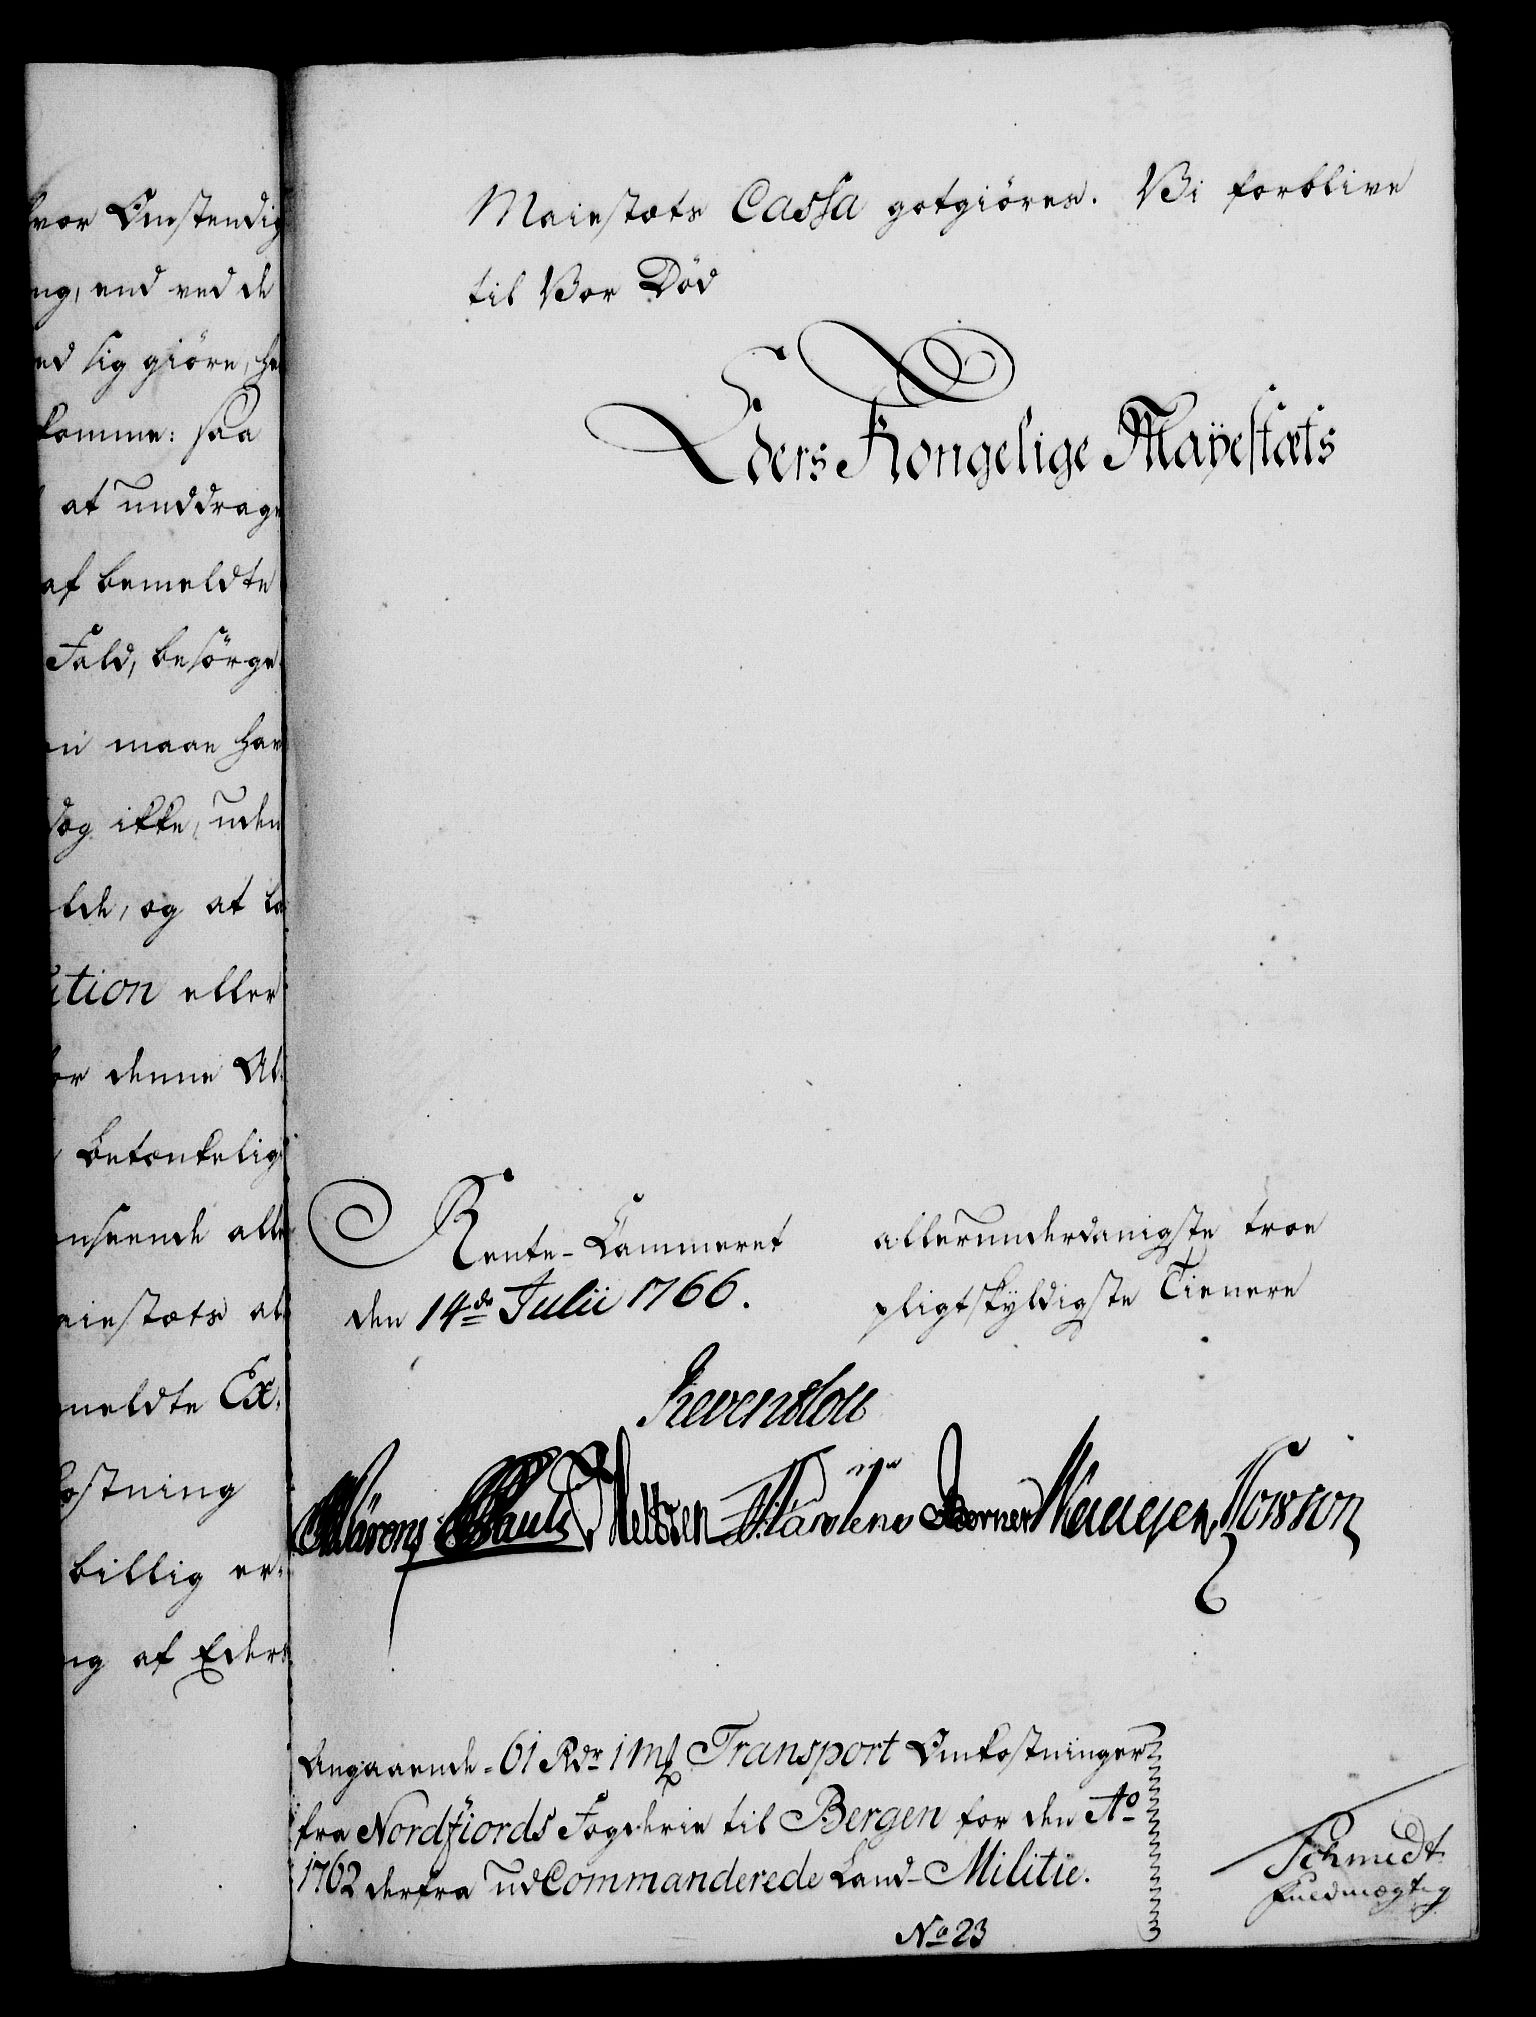 hvor Omstendig
ng, end ved de
ed sig giöre, ha
komme: saa
at unddrage
af bemeldte
Fald, besörge
maae hav
dog ikke, uden
og at
ution eller
or denne Al
betænkelig
nseende alle
aiestæts al
meldte Ex,
kostning
billig er
ng af Eders
Maiestæts Cassa gotgiöres. Vi forblive
til Vor Död
Eders Kongelige Mayestæts
Rente-Cammeret
den 14de Julii 1766.
allerunderdanigste troe
pligtskyldigste Tienere
Revenslou
Angaaende 61 Rdr 1 mk Transport Omkostninger
fra Nordfiords Fogderie til Bergen for den Ao
1762 derfra udCommanderede Land-Militie.
No 23
Schmidt
fuldmægtig